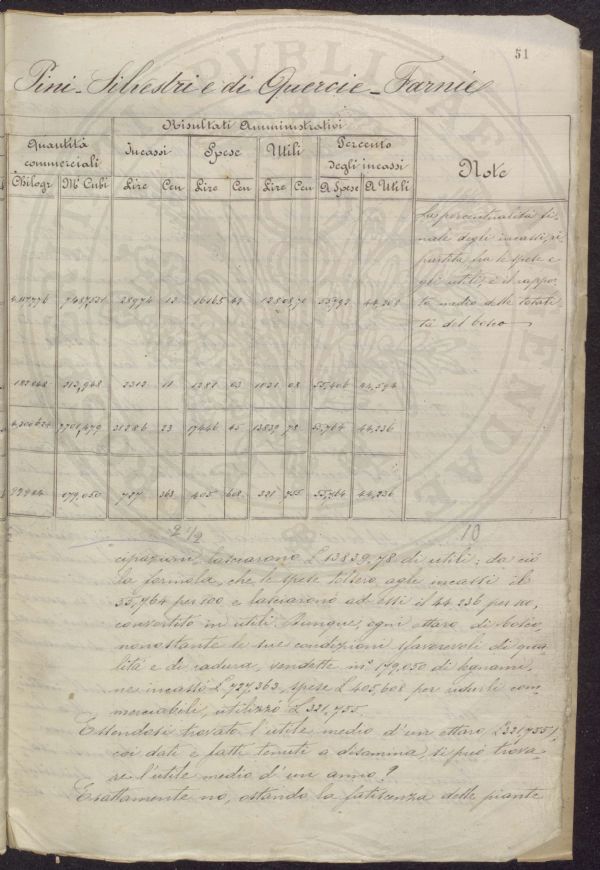 51
Pini-Silvestri e di Quercie-Farnie
Risultati Amministrativi
Quantità commerciali Incassi Spese Utili Percento degli incassi Note
Chilogr M.i Cubi Lire Cen Lire Cen Lire Cen A Spese A Utili
La percentualità fi-
nale degli incassi, ri-
partita tra le spese e
gli utili, è il rappor-
to medio delle totali-
tà del bosco
28974 12 44,208
2312 11 1281 03 1031 08 55,406 44,594
31286 23 17446 45 13839 78 55,764 44,236
179,050 727 363 405 608 321 755 55,764 44,236
2 1/2 10
cipazioni, lasciarono £ 13839,78 di utili; da ciò
la formola, che le spese tolsero agli incassi il
55,764 per 100 e lasciarono ad essi il 44,236 per 100,
convertito in utili. Dunque, ogni ettaro di bosco,
nonostante le sue condizioni sfavorevoli di qua-
lità e di radura, vendette m.i 179,050 di legnami,
ne incassò £ 727,363, spese £ 405,608 per ridurli com-
merciabili, utilizzò £ 321,755.
Essendosi trovato l'utile medio d'un ettaro £ 321,755,
coi dati e fatti tenuti a disamina, si può trova-
re l'utile medio d'un anno?
Esattamente no, ostando la fatiscenza delle piante